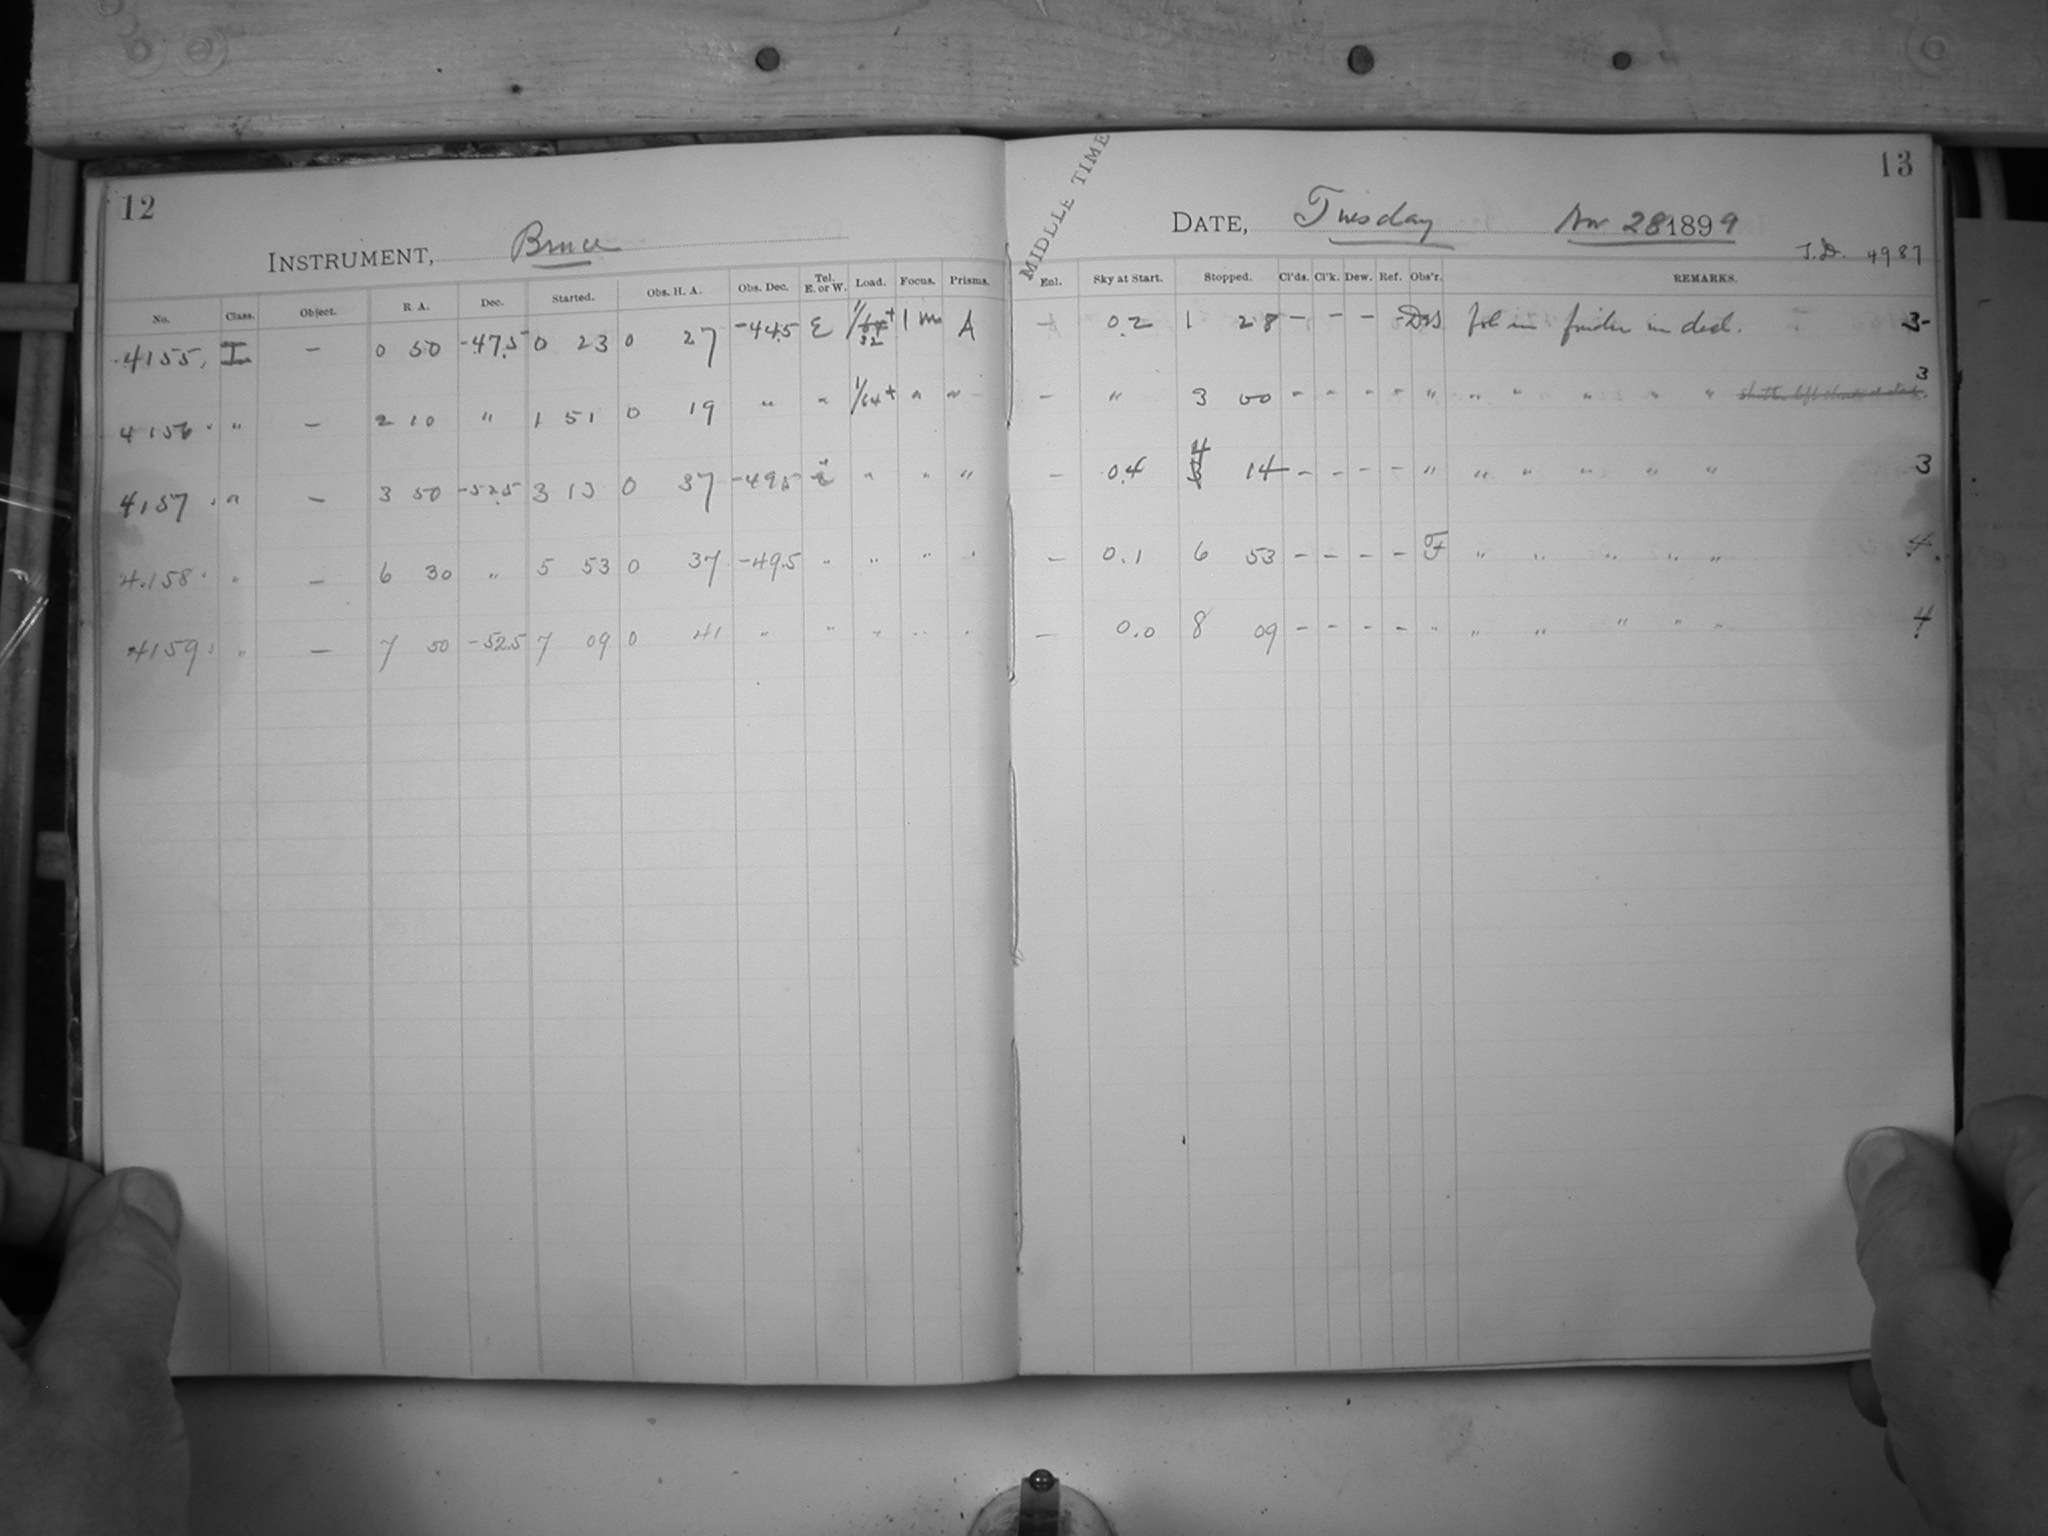 12
INSTRUMENT, Bruce
No. Class. Object. R. A. Dec. Started. Obs. H. A. Obs. Dec. Tel. E. or W. Load. Focus. Prisms.
4155. I — 0 50 -47.5 0 23 0 27 -44.5 E 1/64+ 32 1 m A
4156. " — 2 10 " 1 51 0 19 " " 1/64+ " "
4157. " — 3 50 -52.5 3 13 0 37 -49.5 " " " "
4158. " — 6 30 " 5 53 0 37 -49.5 " " " "
4159. " — 7 50 -52.5 7 09 0 41 " " " " "
MIDLLE TIME
13
DATE, Tuesday Nov 28 1899
J.D. 4987
Enl. Sky at Start. Stopped. Cl'ds. Cl'k. Dew. Ref. Obs'r. REMARKS.
— 0.2 1 28 — — — — fol in finder in decl. 3
— " 3 00 - - - - " " " " " " 3
— 0.4 4 14 — — — — " " " " " " 3
— 0.1 6 53 — — — — F " " " " " 4.
— 0.0 8 09 — — — — " " " " " " 4